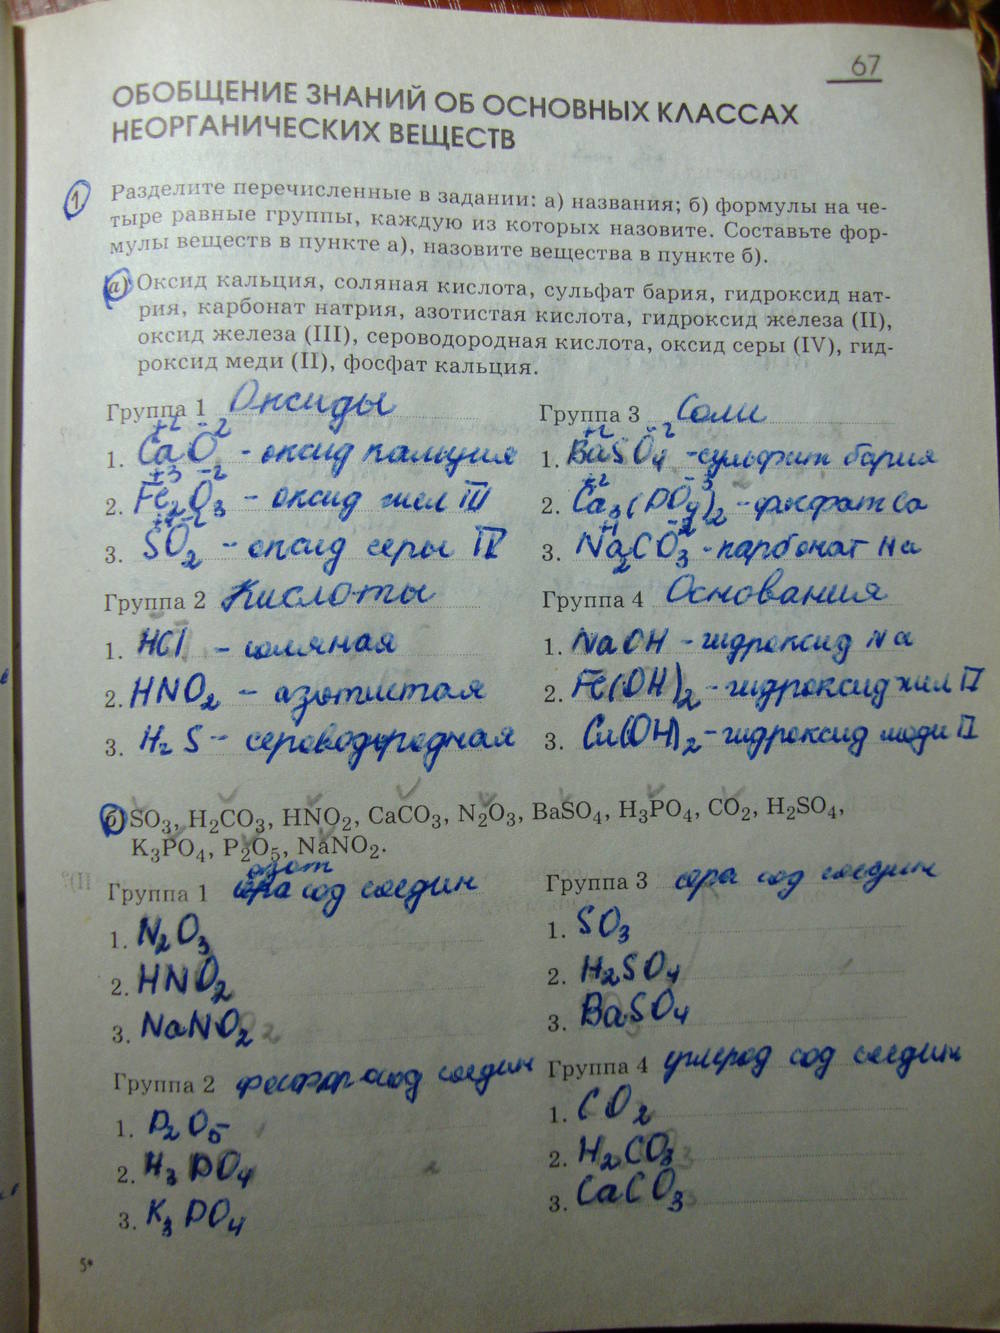 67
ОБОБЩЕНИЕ ЗНАНИЙ ОБ ОСНОВНЫХ КЛАССАХ
НЕОРГАНИЧЕСКИХ ВЕЩЕСТВ
1 Разделите перечисленные в задании: а) названия; б) формулы на че-
тыре равные группы, каждую из которых назовите. Составьте фор-
мулы веществ в пункте а), назовите вещества в пункте б).
а) Оксид кальция, соляная кислота, сульфат бария, гидроксид нат-
рия, карбонат натрия, азотистая кислота, гидроксид железа (II),
оксид железа (III), сероводородная кислота, оксид серы (IV), гид-
роксид меди (II), фосфат кальция.
Группа 1 Оксиды
+2 -2
1. CaO - оксид кальция
+3 -2
2. Fe2O3 - оксид жел III
+4 -2
3. SO2 - оксид серы IV
Группа 2 Кислоты
1. HCl - соляная
2. HNO2 - азотистая
3. H2S - сероводородная
Группа 3 Соли
+2 -2
1. BaSO4 - сульфат бария
+2 -3
2. Ca3(PO4)2 - фосфат Ca
+1 -2
3. Na2CO3 - карбонат Na
Группа 4 Основания
1. NaOH - гидроксид Na
2. Fe(OH)2 - гидроксид жел II
3. Cu(OH)2 - гидроксид меди II
б) SO3, H2CO3, HNO2, CaCO3, N2O3, BaSO4, H3PO4, CO2, H2SO4,
K3PO4, P2O5, NaNO2.
азот
Группа 1 сод соедин
1. N2O3
2. HNO2
3. NaNO2
Группа 2 фосфор сод соедин
1. P2O5
2. H3PO4
3. K3PO4
Группа 3 сера сод соедин
1. SO3
2. H2SO4
3. BaSO4
Группа 4 углерод сод соедин
1. CO2
2. H2CO3
3. CaCO3
5*